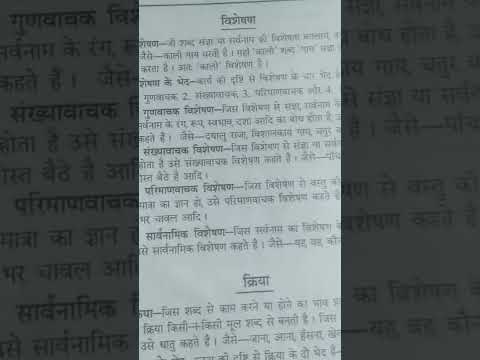 विशेषण
शेषण—जो शब्द संज्ञा या सर्वनाम की विशेषता बतलाए,
जैसे—काली गाय चरती है। यहाँ 'काली' शब्द 'गाय' संज्ञा
करता है। अतः 'काली' विशेषण है।
शेषण के भेद—कार्य की दृष्टि से विशेषण के चार भेद
गुणवाचक 2. संख्यावाचक, 3. परिमाणवाचक और 4.
गुणवाचक विशेषण—जिस विशेषण से संज्ञा, सर्वनाम के
र्वनाम के रंग, रूप, स्वभाव, दशा आदि का बोध होता है,
कहते हैं। जैसे—दयालु राजा, विशालकाय गाय, चतुर
संख्यावाचक विशेषण—जिस विशेषण से संज्ञा या सर्वनाम
होता है उसे संख्यावाचक विशेषण कहते हैं। जैसे—पाँच
स्त बैठे हैं आदि।
परिमाणवाचक विशेषण—जिस विशेषण से वस्तु की
मात्रा का ज्ञान हो, उसे परिमाणवाचक विशेषण कहते हैं
भर चावल आदि।
सार्वनामिक विशेषण—जिस सर्वनाम का विशेषण के
से सार्वनामिक विशेषण कहते हैं। जैसे—यह, वह, कौन
क्रिया
या—जिस शब्द से काम करने या होने का भाव
क्रिया किसी-न-किसी मूल शब्द से बनती है। जिस
उसे धातु कहते हैं। जैसे—जाना, आना, हँसना, खेल
की दृष्टि से क्रिया के दो भेद हैं—